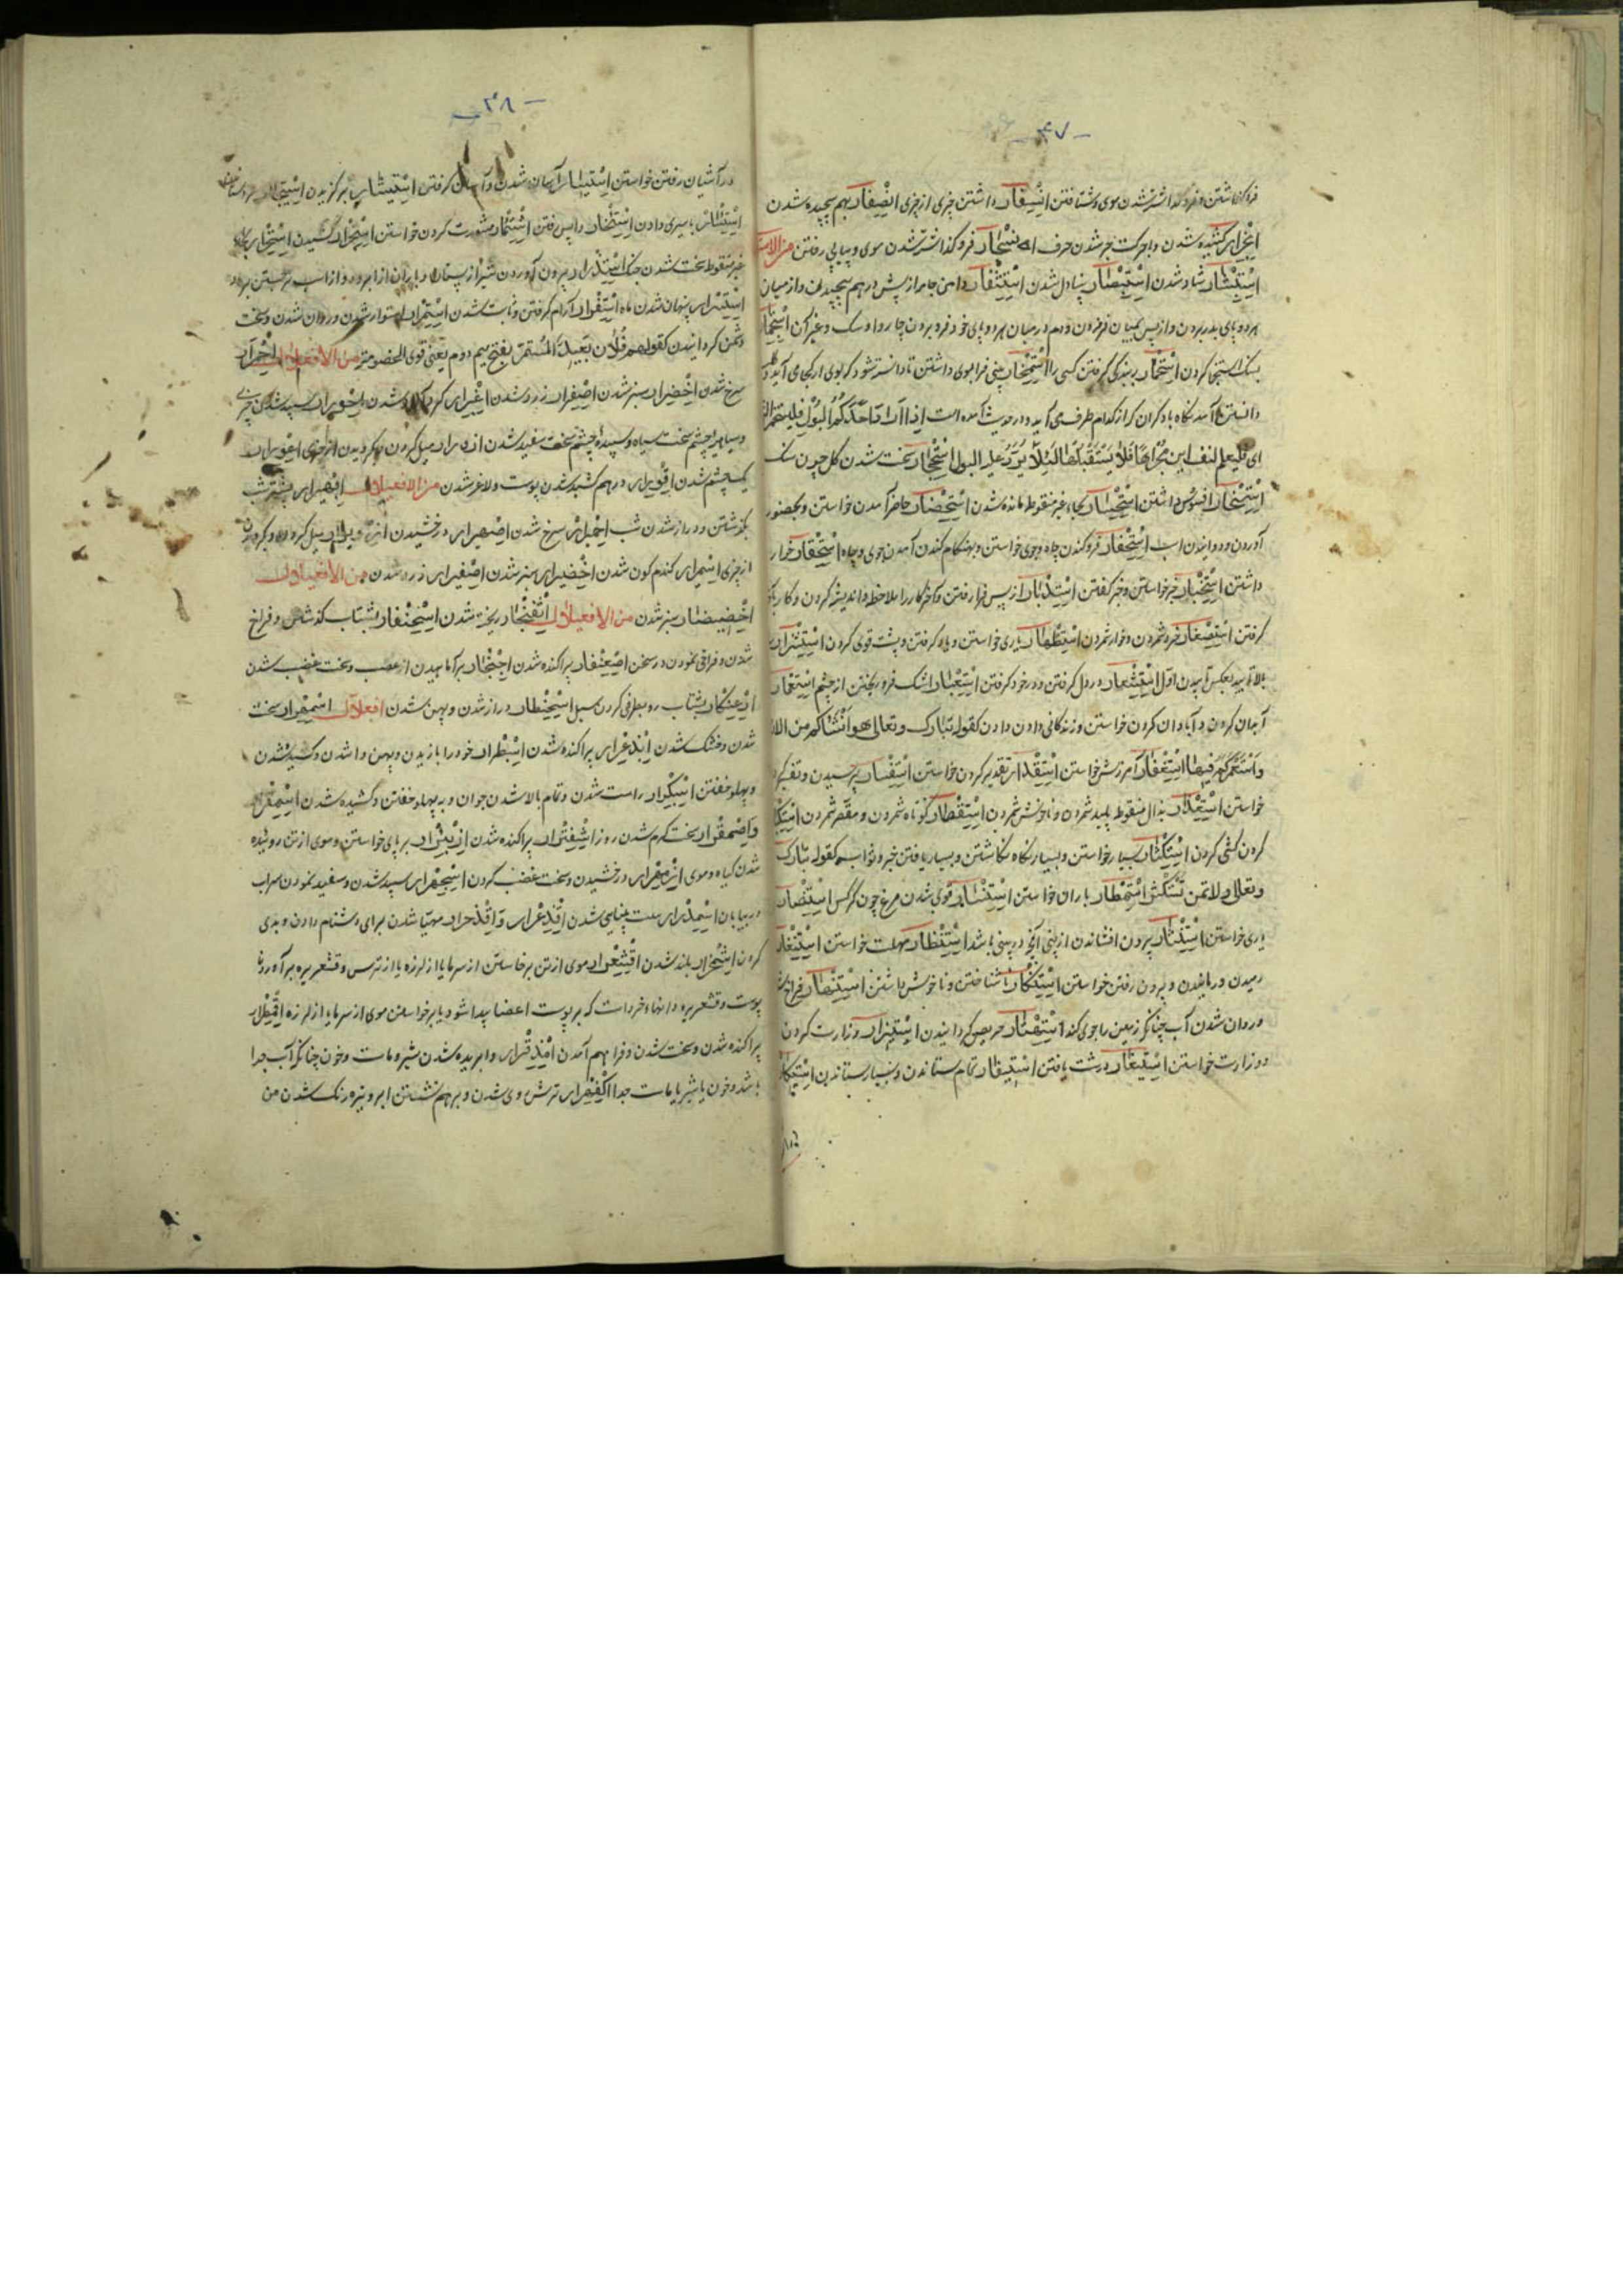 ۴۷
فرو گذاشتن و فرو گذاشته شدن موی و شتافتن انسفار داشتن چیزی از چیزی انضفار بهم پیچیده شدن
انجرار کشیده شدن و با حرکت جر شدن حرف فرو گذاشته شدن موی و پیاپی رفتن
استبشار شاد شدن استبصار بینا دل شدن استثفار دامن جامه از پیش درهم پیچیدن و از میان
هر دو پای بدر بردن و از پس بمیان فرو بردن و دم در میان هر دو پای خود فرو بردن چاروا و سگ و غیر آن
بسنگ استنجا کردن استخمار به بندگی گرفتن کسی را استمخار بینی فرا موی داشتن تا دانسته شود که بوی از کجا می آید و
دانستن نگاه باد کران که از کدام طرف می آید و در حدیث آمده است اذا اراد احدکم البول فلیستمخر الریح
ای فلیعلم لنفسه این مجراها فلا یستقبلها لئلا یرد علیه البول استحجار سخت شدن گل چون سنگ
استسخار افسوس داشتن استحسار بحاء غیر منقوط مانده شدن استحضار حاضر آمدن خواستن و بحضور
آوردن و دوانیدن اسب استحفار فرو کندن چاه و جوی خواستن و بهنگام کندن آمدن جوی و چاه استحقار خوار
داشتن استخبار خبر خواستن و خبر گفتن استدبار از پس فرا رفتن و آخر کار را ملاحظه و اندیشه کردن و کار
گرفتن استصغار خرد شمردن و خوار شمردن استظهار یاری خواستن و یاد گرفتن و پشت قوی کردن
استشعار در دل گرفتن و در خود گرفتن استعبار اشک فرو ریختن از چشم استعمار
آبادان کردن و آبادان کردن خواستن و زندگانی دادن کقوله تبارک و تعالی هو انشاکم من الارض
و استعمرکم فیها استغفار آمرزش خواستن استقدار تقدیر کردن خواستن استفسار پرسیدن و تفسیر
خواستن استقذار بذال منقوط پلید شمردن و ناخوش شمردن استقصار کوتاه شمردن و مقصر شمردن
کردن کشی کردن استکثار بسیار خواستن و بسیار نگاه نگاشتن و بسیار یافتن خیر و ثواب کقوله تبارک
و تعالی ولا تمنن تستکثر استمطار باران خواستن استنسار قوی شدن مرغ چون کرگس استنصار
یاری خواستن استنثار بیرون افشاندن از بینی آنچه در بینی باشد استنظار مهلت خواستن استنفار
رمیدن و رمانیدن و بیرون رفتن خواستن استنکار ناشناختن و ناخوش داشتن استنهار فراخ
و روان شدن آب چنانکه زمین را جوی کند استهتار حریص گردانیدن استیزار وزارت کردن
و وزارت خواستن درشت یافتن استیفار تمام ستاندن و بسیار ستاندن
۴۸
در آشیان رفتن خواستن استیسار آسان شدن و آسان گرفتن استیثار برگزیدن
باسیری دادن واپس رفتن مشورت کردن خواستن
غیر منقوط سخت شدن جنگ استدرار بیرون آوردن شیر از پستان و باران از ابر
استسرار پنهان شدن ماه استقرار آرام گرفتن و ثابت شدن استمرار استوار شدن و روان شدن و سخت
دشمن گردانیدن کقولهم فلان بعید المستمر بفتح میم دوم یعنی قوی الخصومة من الافعلال احمرار
سرخ شدن اخضرار سبز شدن اصفرار زرد شدن اغبرار گرد آلود شدن احورار سپید شدن چیزی
و سیاهی چشم سخت سیاه و سپیدهٔ چشم سخت سفید شدن ازورار میل کردن و بگردیدن از چیزی اعورار
یک چشم شدن اقورار درهم کشیده شدن پوست و لاغر شدن من الافعیلال ابهیرار بیشتر شب
بگذشتن و دراز شدن شب احمیرار سرخ شدن درخشیدن ازویرار میل کردن و بگردیدن
از چیزی اسمیرار گندم گون شدن اخضیرار سبز شدن اصفیرار زرد شدن من الافعیعال
اخضیضار سبز شدن من الافعنلال اثعنجار ریخته شدن اسحنفار بشتاب گذشتن و فراخ
شدن و فراخی نمودن در سخن اصعنفار پراکنده شدن برآماهیدن از عصب و سخت غضب شدن
ادعنکار بشتاب رو بطرفی کردن سیل دراز شدن و پهن شدن افعلال اسمقرار سخت
شدن و خشک شدن ابذعرار پراکنده شدن اسبطرار خود را بازیدن و پهن وا شدن و کشیده شدن
و پهلو خفتن اسبکرار راست شدن و تمام بالا شدن جوان و به پهلو خفتن و کشیده شدن
و اصمقرار سخت گرم شدن روز اشفترار پراکنده شدن ازبئرار بر پای خواستن و موی از تن روئیده
شدن گیاه و موی ازمهرار درخشیدن و سخت غضب کردن اسجهرار سپید شدن و سفید نمودن سراب
در بیابان سست بینایی شدن اقذعرار و اقذحرار مهیا شدن برای دشنام دادن و بدی
کردن اشمخرار بلند شدن اقشعرار موی از تن برخاستن از سرما یا از لرزه یا از ترس و قشعریره برآوردن
پوست و قشعریره دانهاء خرد است که بر پوست اعضا پیدا شود یا برخواستن موی از سرما یا از لرزه اقمطرار
پراکنده شدن و سخت شدن و فراهم آمدن امذقرار وا بریده شدن شیر و ماست و خون چنانکه آب جدا
باشد و خون یا شیر یا ماست جدا اکفهرار ترش روی شدن و برهم نشستن ابر و تیره رنگ شدن من